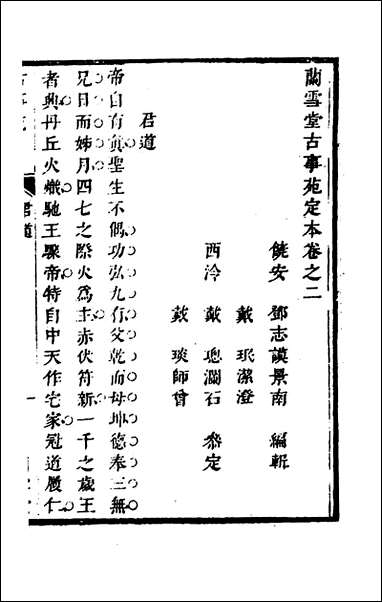 蘭雪堂古事苑定本卷之二
饒安 鄧志謨景南 編輯
戴 珉潔澄
西泠 戴 璁瀾石 叅定
戴 琰師曾
君道
帝自有眞聖生不偶功弘九有父乾而母坤德奉三無
兄日而姊月四七之際火為主赤伏符新一千之歲王
者興丹丘火熾馳王驟帝特自中天作宅家冠道履仁
君道
一